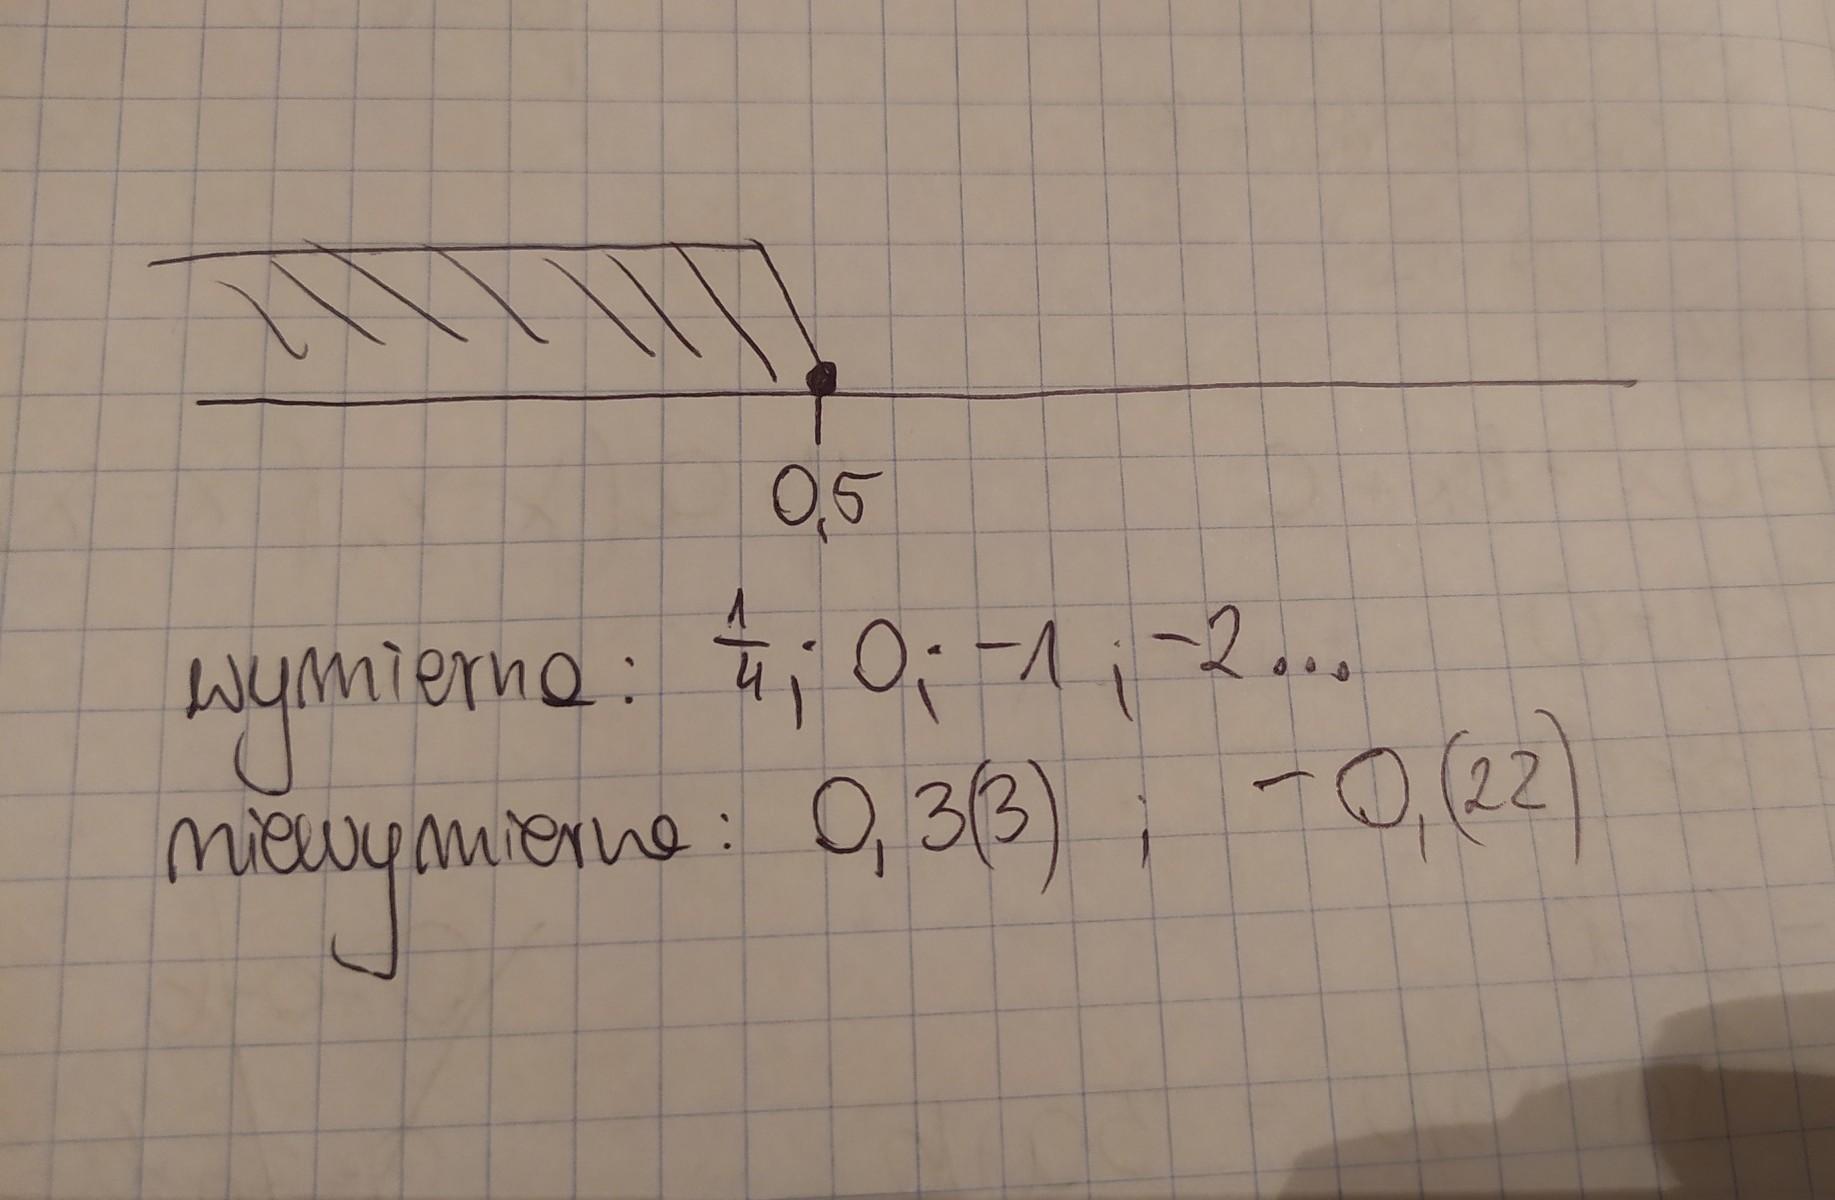 0,5
wymierne: 1/4; 0; -1; -2...
niewymierne: 0,3(3) ; -0,(22)